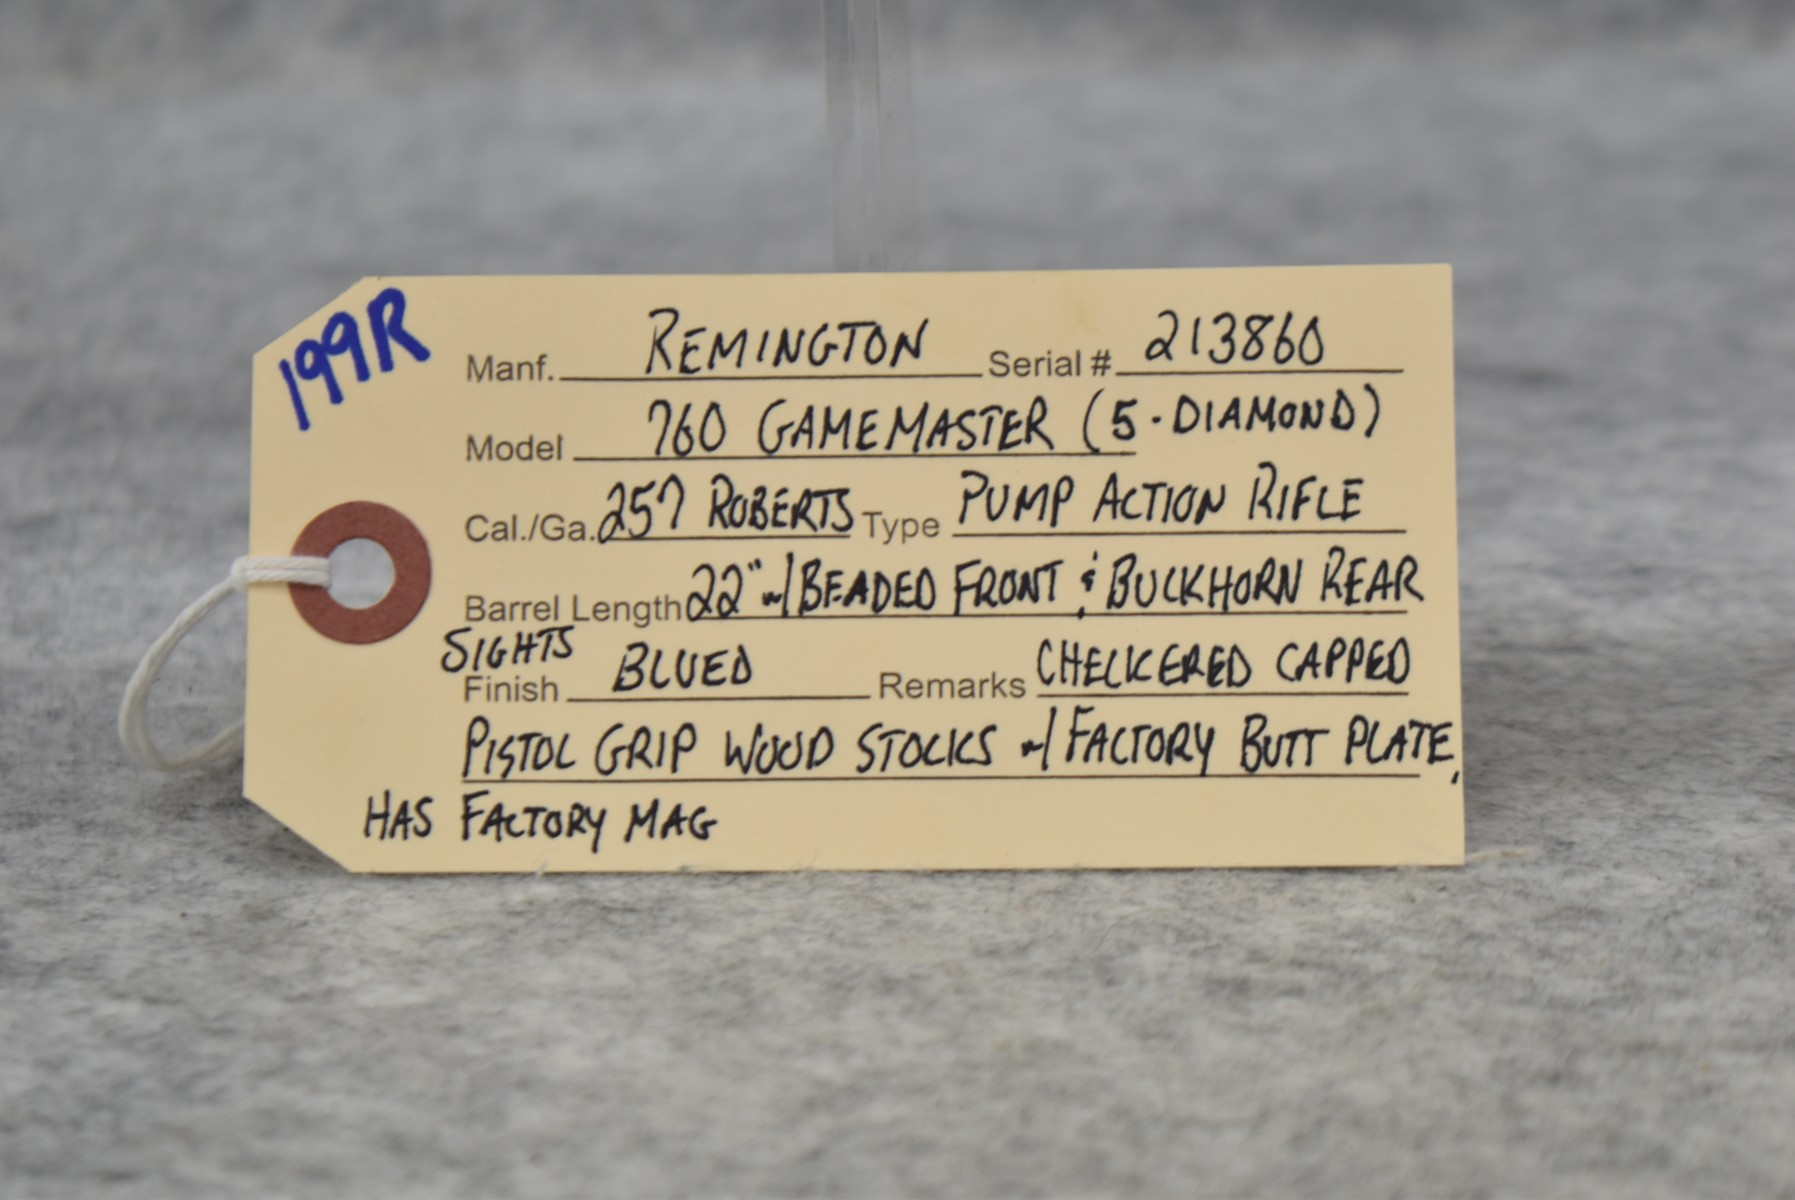 199R
Manf. REMINGTON Serial # 213860
Model 760 GAMEMASTER (5-DIAMOND)
Cal./Ga. 257 ROBERTS Type PUMP ACTION RIFLE
Barrel Length 22" w/BEADED FRONT & BUCKHORN REAR
SIGHTS
Finish BLUED Remarks CHECKERED CAPPED
PISTOL GRIP WOOD STOCKS w/FACTORY BUTT PLATE,
HAS FACTORY MAG